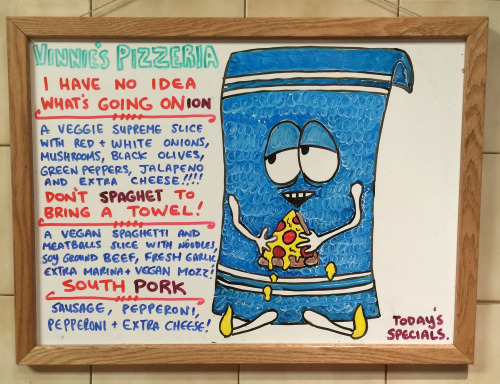 VINNIE'S PIZZERIA
I HAVE NO IDEA
WHAT'S GOING ONION
A VEGGIE SUPREME SLICE
WITH RED + WHITE ONIONS,
MUSHROOMS, BLACK OLIVES,
GREEN PEPPERS, JALAPENO
AND EXTRA CHEESE!!!!
DON'T SPAGHET TO
BRING A TOWEL!
A VEGAN SPAGHETTI AND
MEATBALLS SLICE WITH NOODLES,
SOY GROUND BEEF, FRESH GARLIC
EXTRA MARINA + VEGAN MOZZ!
SOUTH PORK
SAUSAGE, PEPPERONI,
PEPPERONI + EXTRA CHEESE!
TODAY'S
SPECIALS.